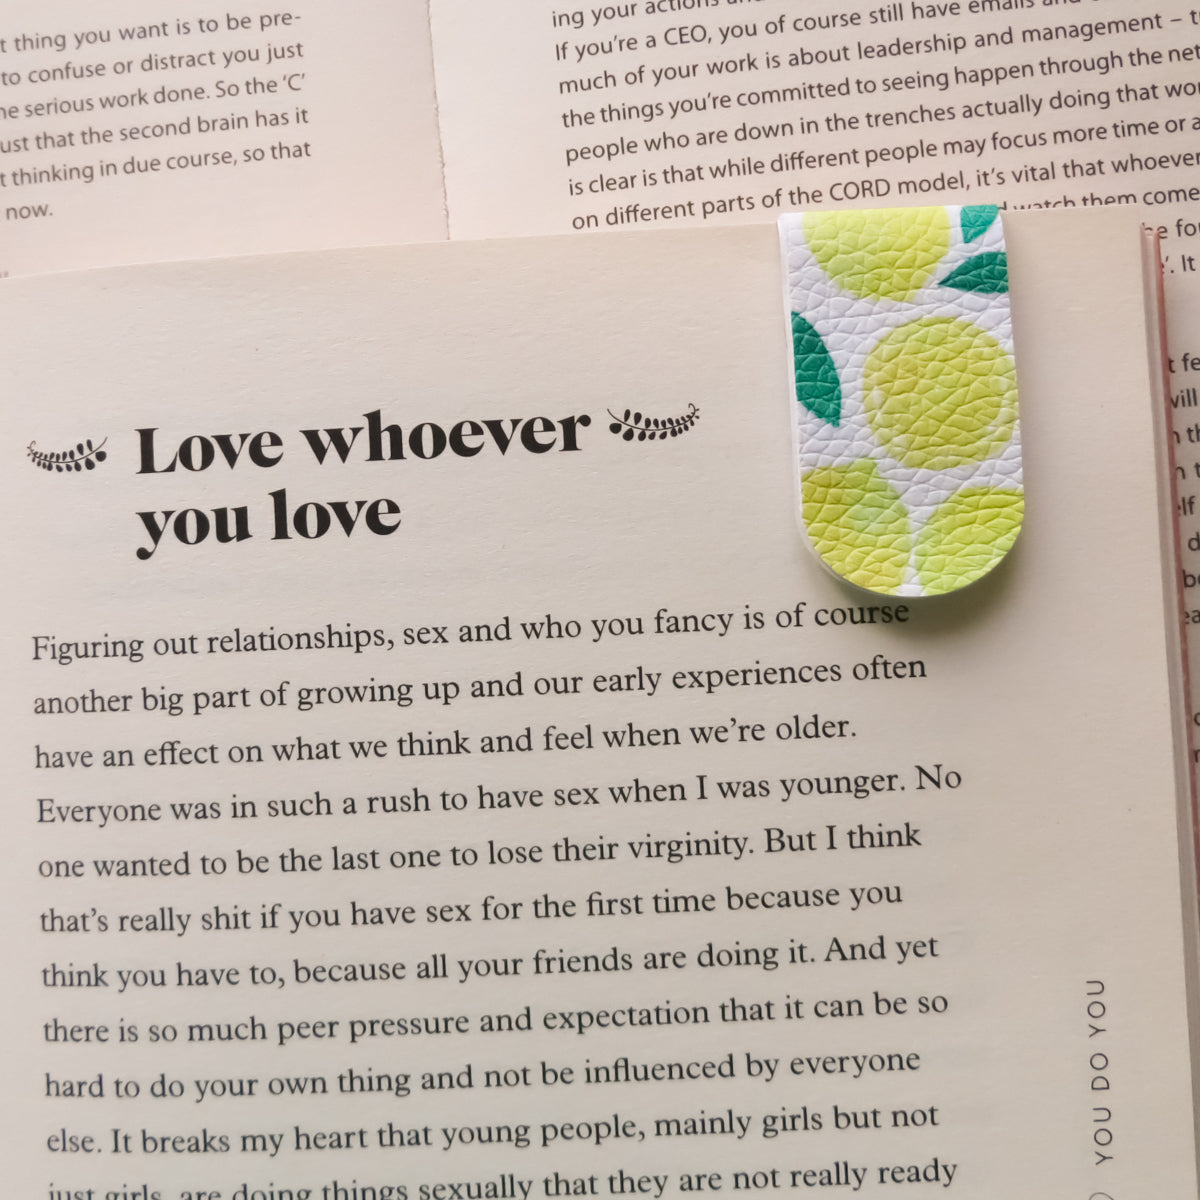 t thing you want is to be pre-
to confuse or distract you just
serious work done. So the ‘C’
ust that the second brain has it
t thinking in due course, so that
now.
ing your actions
If you’re a CEO, you of course still have emails
much of your work is about leadership and management –
the things you’re committed to seeing happen through the net
people who are down in the trenches actually doing that
is clear is that while different people may focus more time or
on different parts of the CORD model, it’s vital that whoever
watch them come
Love whoever
you love
Figuring out relationships, sex and who you fancy is of course
another big part of growing up and our early experiences often
have an effect on what we think and feel when we’re older.
Everyone was in such a rush to have sex when I was younger. No
one wanted to be the last one to lose their virginity. But I think
that’s really shit if you have sex for the first time because you
think you have to, because all your friends are doing it. And yet
there is so much peer pressure and expectation that it can be so
hard to do your own thing and not be influenced by everyone
else. It breaks my heart that young people, mainly girls but not
just girls, are doing things sexually that they are not really ready
YOU DO YOU